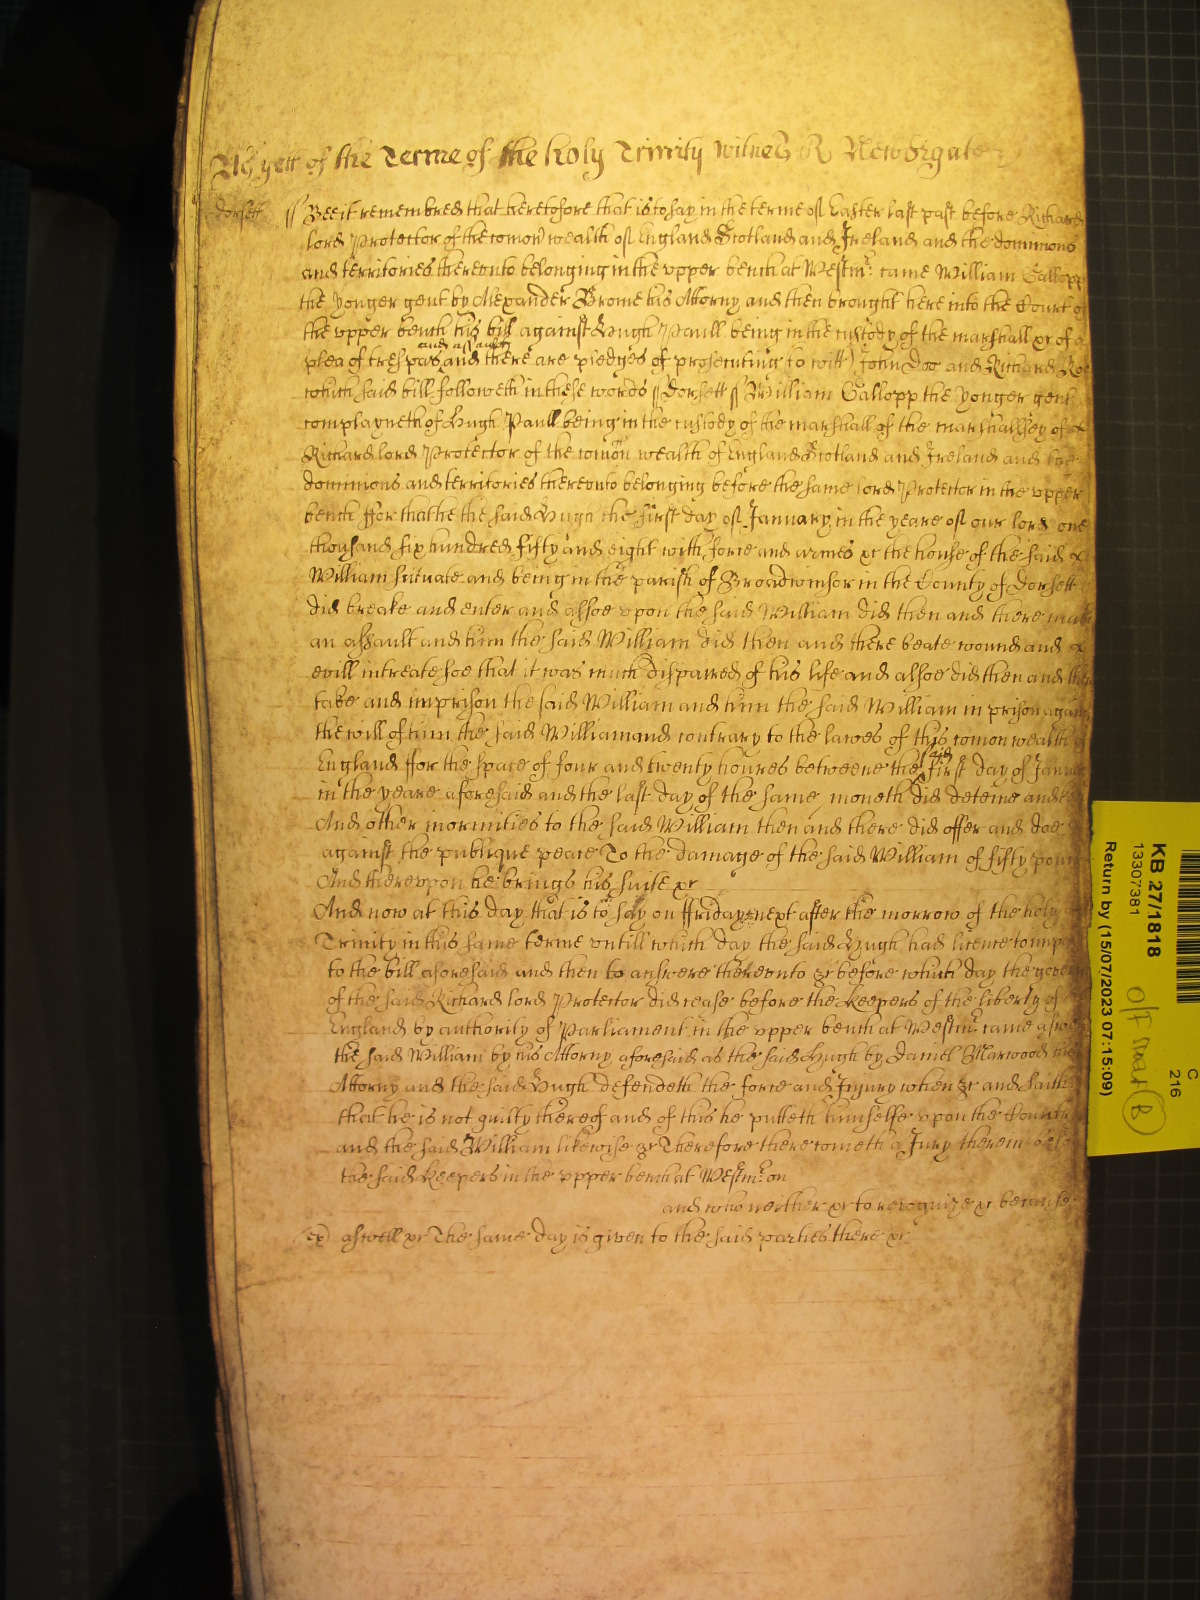 As yett of the Terme of the holy Trinity witnes R Newdigate
Dorsett ss Bee it remembred that heretofore that is to say in the terme of Easter last past before Richard
lord Protector of the comon wealth of England Scotland and Ireland and the dominions
and territories thereunto belonging in the upper bench at Westmr. came William Gallopp
the yonger gent by Alexander Brome his Attorny and then brought here into the Court of
the upper bench his bill against Hugh Paull being in the custody of the marshall &c of a
plea of trespas and assault and there are pledges of prosecuting to witt) John Doo and Richard Roo
which said bill followeth in these words ss Dorsett ss William Gallopp the yonger gent
complayneth of Hugh Paull being in the custody of the marshall of the marshallsey of
Richard lord Protector of the comon wealth of England Scotland and Ireland and the
dominions and territories thereunto belonging before the same lord Protector in the upper
bench ffor that he the said Hugh the first day of January in the yeare of our lord one
thousand six hundred fifty and eight with force and armes &c the house of the said
William scituate and being in the parish of Broadwinsor in the County of Dorsett
did breake and enter and alsoe upon the said William did then and there make
an assault and him the said William did then and there beate wound and
evill intreate soe that it was much dispaired of his life and alsoe did then and there
take and imprison the said William and him the said William in prison against
the will of him the said William and contrary to the lawes of this comon wealth of
England ffor the space of four and twenty houres betweene the said first day of January
in the yeare aforesaid and the last day of the same moneth did deteine and
And other inormities to the said William then and there did offer and doe
against the publique peace To the damage of the said William of fifty pounds
And thereupon he brings his suite &c
And now at this day that is to say on ffriday next after the morrow of the holy
Trinity in this same terme untill which day the said Hugh had licence to imp
to the bill aforesaid and then to answere thereunto &c before which day the
of the said Richard lord Protector did cease before the Keepers of the liberty of
England by authority of Parliament in the upper bench at Westmr. came aswell
the said William by his Attorny aforesaid as the said Hugh by Daniel Marwood his
Attorny and the said Hugh defendeth the force and Injury when &c and saith
that he is not guilty thereof and of this he putteth himselfe upon the Country
and the said William likewise &c Therefore there cometh a Jury therein before
the said Keepers in the upper bench at Westmr. on
and who neither &c to recognize &c because
aswell &c The same day is given to the said parties there &c
KB 27/1818
13307381
Return by (15/07/2023 07:15:09)
C
216
O/F
B